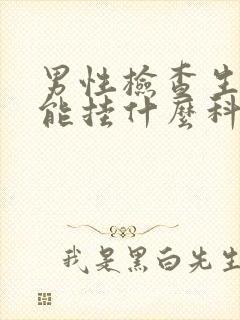 男性檢查生
能挂什麼科
我是黑白先生